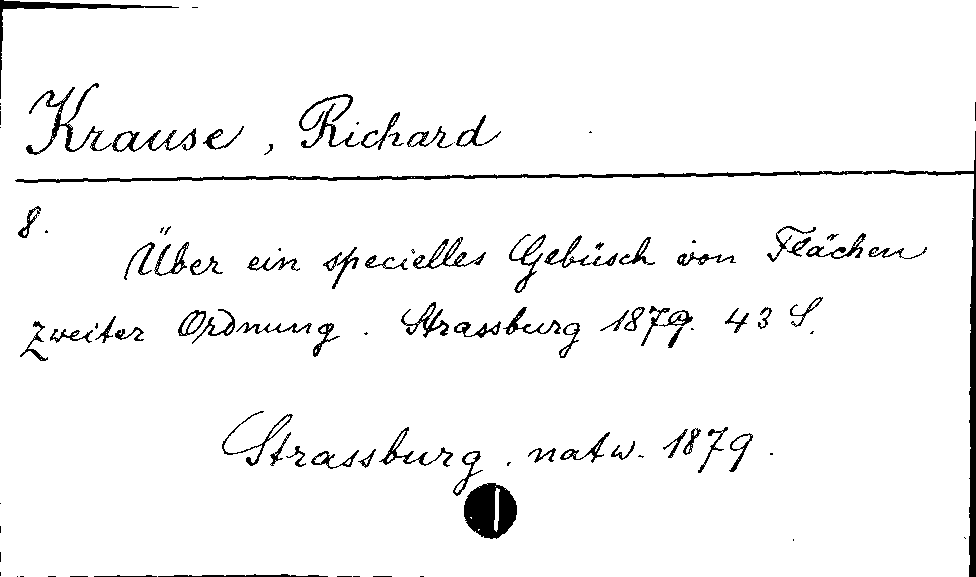 Krause, Richard
8.
Über ein specielles Gebüsch von Flächen
zweiter Ordnung. Strassburg 1879. 43 S.
Strassburg. natw. 1879.